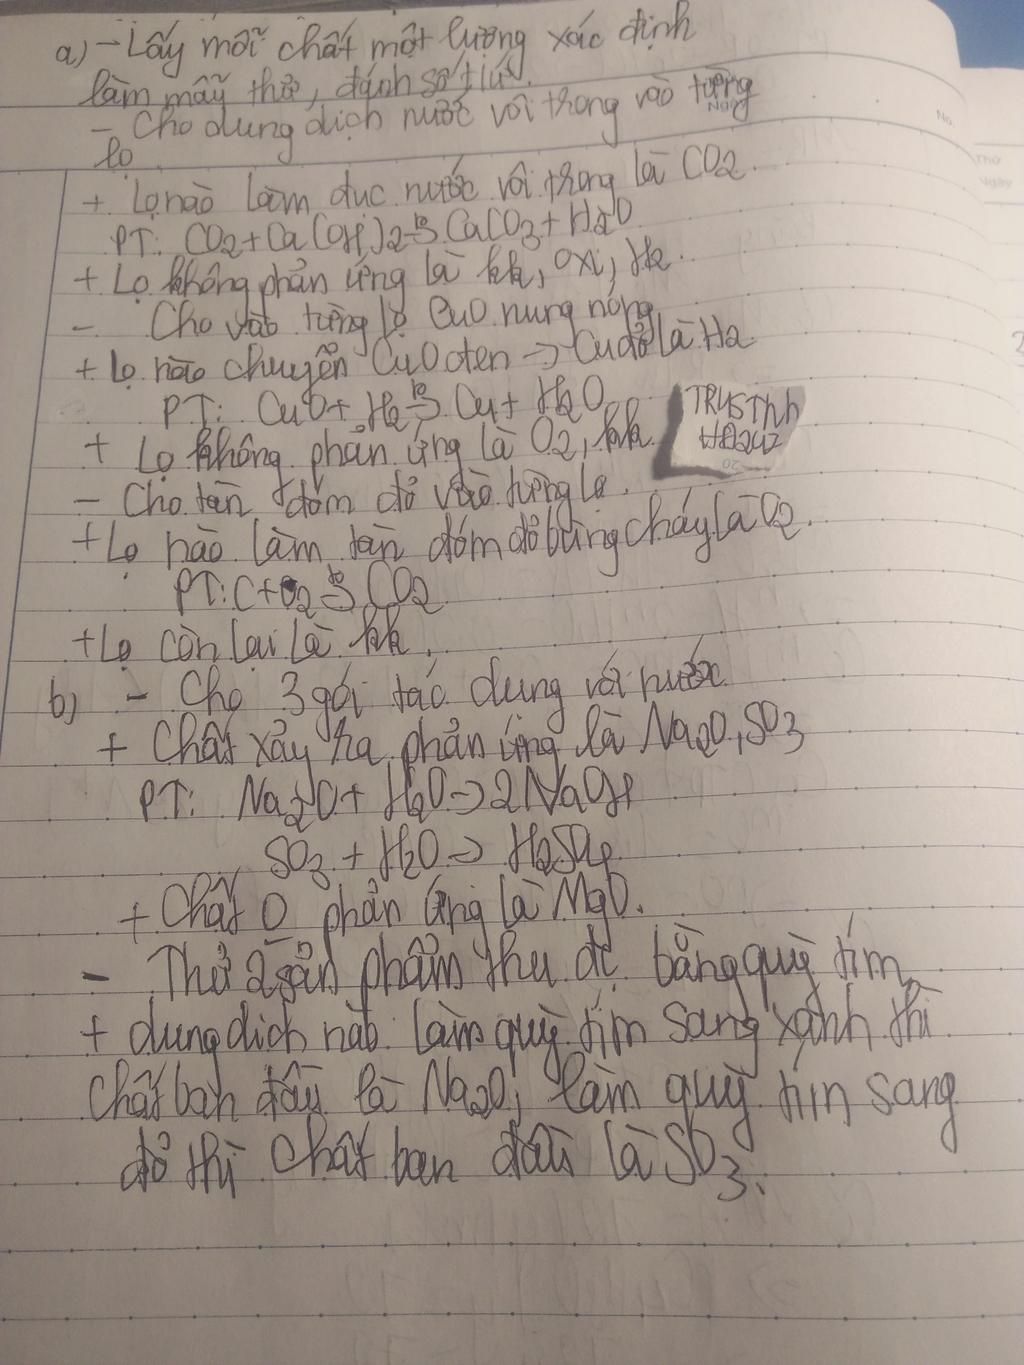 a) - Lấy mỗi chất một lượng xác định
làm mẫu thử, đánh số
- Cho dung dịch nước vôi trong vào từng
lọ
+ Lọ nào làm đục nước vôi trong là CO2.
PT: CO2 + Ca(OH)2 → CaCO3 + H2O
+ Lọ không phản ứng là kk, oxi, H2.
- Cho vào từng lọ CuO nung nóng
+ Lọ nào chuyển CuO đen → Cu đỏ là H2
PT: CuO + H2 → Cu + H2O
+ Lọ không phản ứng là O2, kk.
- Cho tàn đóm đỏ vào từng lọ.
+ Lọ nào làm tàn đóm đỏ bùng cháy là O2.
PT: C + O2 → CO2
+ Lọ còn lại là kk.
b) - Cho 3 gói tác dụng với nước
+ Chất xảy ra phản ứng là Na2O, SO3
PT: Na2O + H2O → 2NaOH
SO3 + H2O → H2SO4
+ Chất 0 phản ứng là MgO.
- Thử 2 sản phẩm thu đc bằng quỳ tím
+ dung dịch nào làm quỳ tím sang xanh thì
chất ban đầu là Na2O, làm quỳ tím sang
đỏ thì chất ban đầu là SO3.